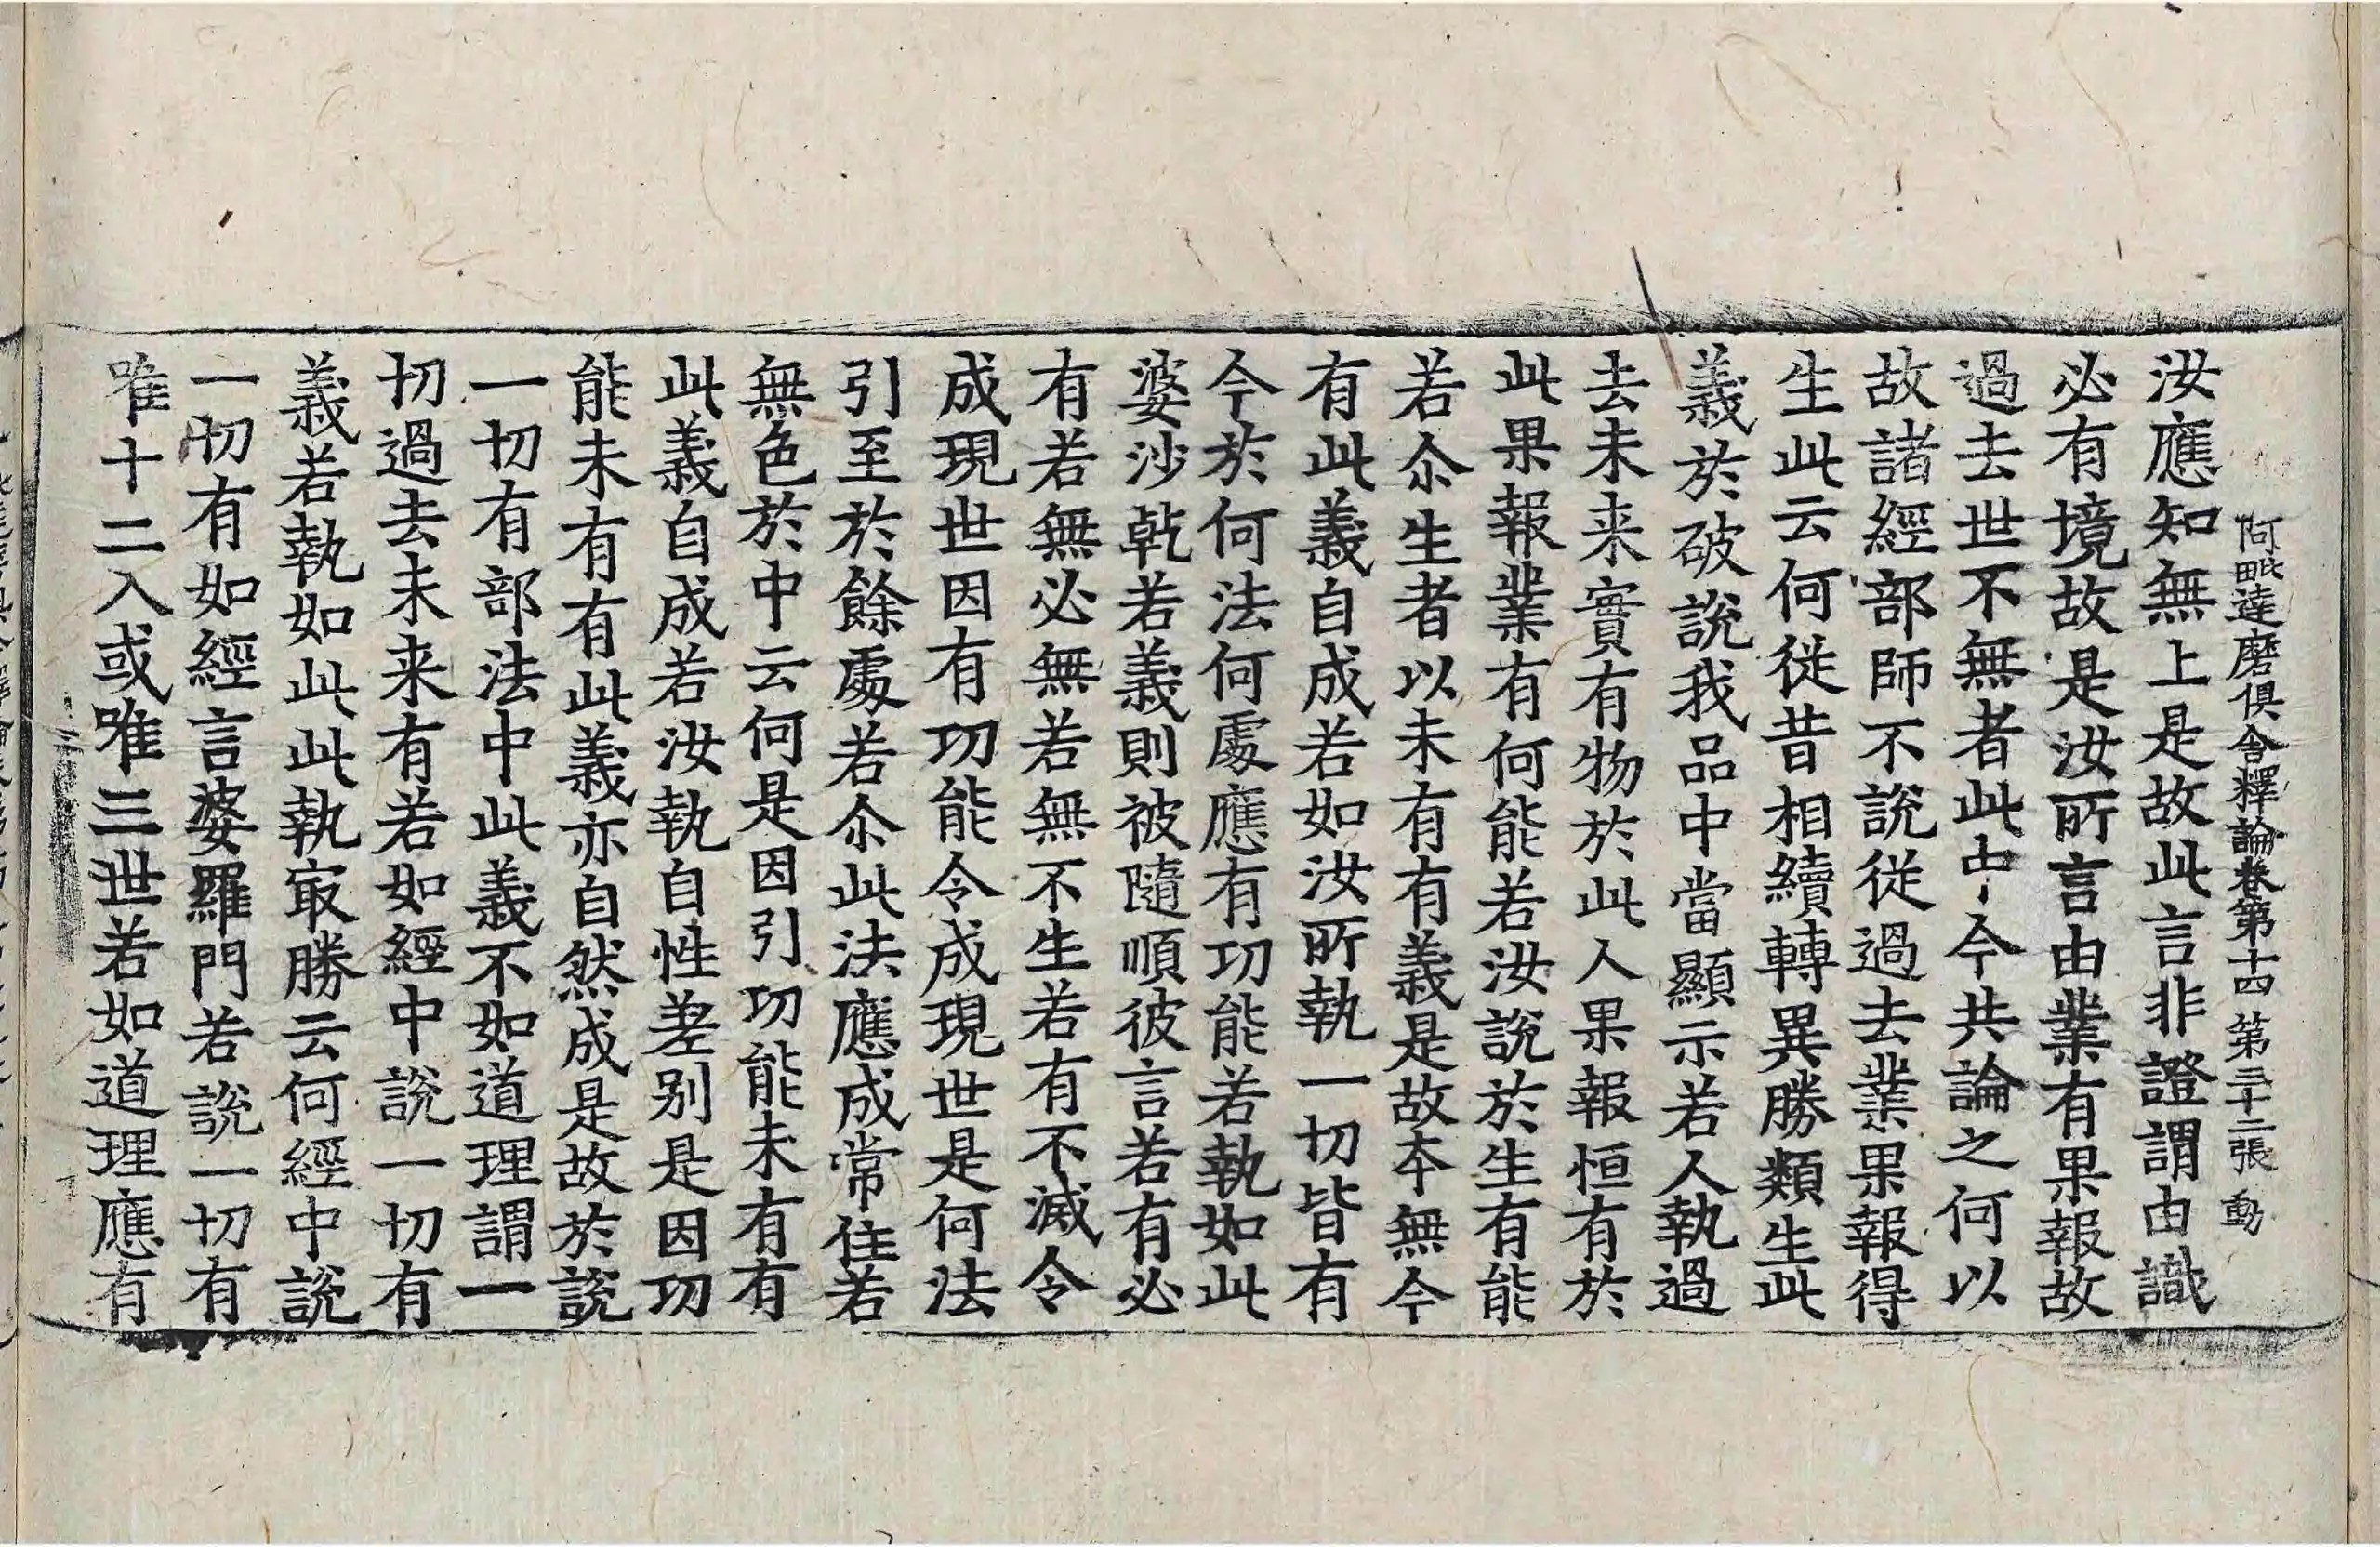 阿毗達磨俱舍釋論卷第十四 第三十二張 動
汝應知無上是故此言非證謂由識
必有境故是汝所言由業有果報故
過去世不無者此中今共論之何以
故諸經部師不說從過去業果報得
生此云何從昔相續轉異勝類生此
義於破說我品中當顯示若人執過
去未来實有物於此人果報恒有於
此果報業有何能若汝說於生有能
若尒生者以未有有義是故本無今
有此義自成若如汝所執一切皆有
今於何法何處應有功能若執如此
婆沙乾若義則被隨順彼言若有必
有若無必無若無不生若有不滅令
成現世因有功能令成現世是何法
引至於餘處若尒此法應成常住若
無色於中云何是因引功能未有有
此義自成若汝執自性差别是因功
能未有有此義亦自然成是故於說
一切有部法中此義不如道理謂一
切過去未来有若如經中說一切有
義若執如此此執㝡勝云何經中說
一切有如經言婆羅門若說一切有
唯十二入或唯三世若如道理應有